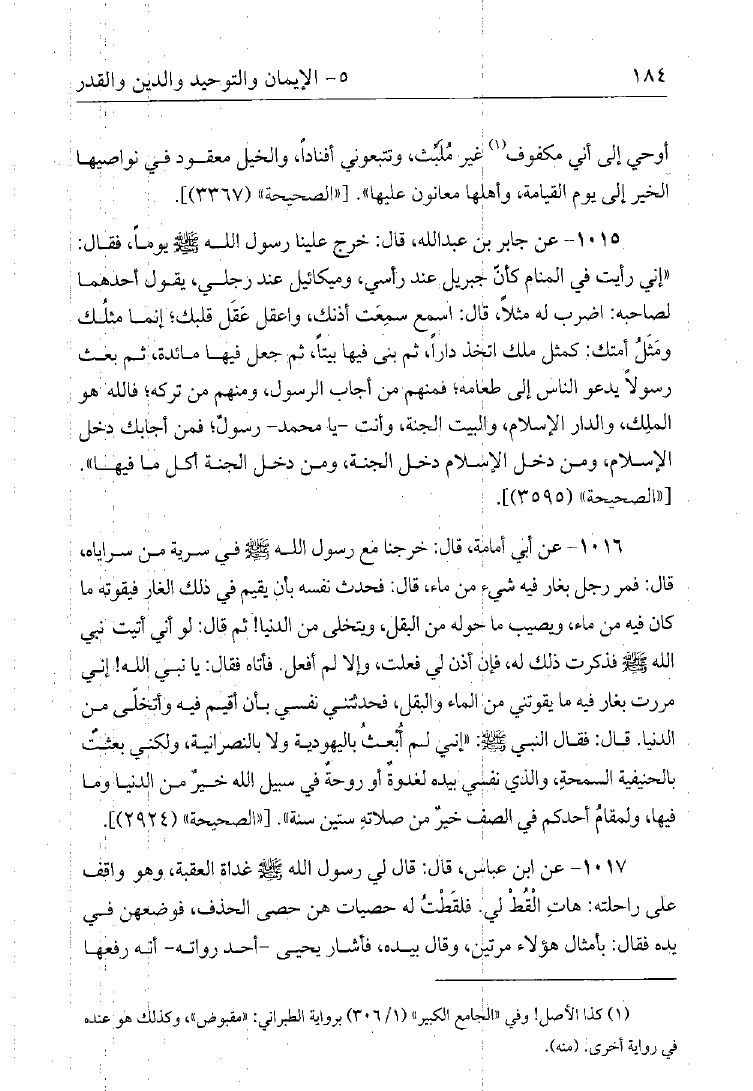 ١٨٤
٥- الإيمان والتوحيد والدين والقدر
أوحي إلى أني مكفوف(١) غير مُلَبَّث، وتتبعوني أفناداً، والخيل معقود في نواصيها
الخير إلى يوم القيامة، وأهلها معانون عليها». [«الصحيحة» (٣٣٦٧)].
١٠١٥- عن جابر بن عبدالله، قال: خرج علينا رسول الله ﷺ يوماً، فقال:
«إني رأيت في المنام كأنّ جبريل عند رأسي، وميكائيل عند رجلي، يقول أحدهما
لصاحبه: اضرب له مثلاً، قال: اسمع سمِعَت أذنك، واعقل عَقَل قلبك؛ إنما مثلُك
ومَثَلُ أمتك: كمثل ملك اتخذ داراً، ثم بنى فيها بيتاً، ثم جعل فيها مائدة، ثم بعث
رسولاً يدعو الناس إلى طعامه؛ فمنهم من أجاب الرسول، ومنهم من تركه؛ فالله هو
الملِك، والدار الإسلام، والبيت الجنة، وأنت -يا محمد- رسولٌ؛ فمن أجابك دخل
الإسلام، ومن دخل الإسلام دخل الجنة، ومن دخل الجنة أكل ما فيها».
[«الصحيحة» (٣٥٩٥)].
١٠١٦- عن أبي أمامة، قال: خرجنا مع رسول الله ﷺ في سرية من سراياه،
قال: فمر رجل بغار فيه شيء من ماء، قال: فحدث نفسه بأن يقيم في ذلك الغار فيقوته ما
كان فيه من ماء، ويصيب ما حوله من البقل، ويتخلى من الدنيا! ثم قال: لو أني أتيت نبي
الله ﷺ فذكرت ذلك له، فإن أذن لي فعلت، وإلا لم أفعل. فأتاه فقال: يا نبي الله! إني
مررت بغار فيه ما يقوتني من الماء والبقل، فحدثتني نفسي بأن أقيم فيه وأتخلّى من
الدنيا. قال: فقال النبي ﷺ: «إني لم أُبعثُ باليهودية ولا بالنصرانية، ولكني بعثتُ
بالحنيفية السمحةِ، والذي نفسي بيده لغدوةٌ أو روحةٌ في سبيل الله خيرٌ من الدنيا وما
فيها، ولمقامُ أحدكم في الصف خيرٌ من صلاتهِ ستين سنة». [«الصحيحة» (٢٩٢٤)].
١٠١٧- عن ابن عباس، قال: قال لي رسول الله ﷺ غداة العقبة، وهو واقف
على راحلته: هاتِ الْقُطْ لي. فلقَطْتُ له حصيات هن حصى الحذف، فوضعهن في
يده فقال: بأمثال هؤلاء مرتين، وقال بيده، فأشار يحيى -أحد رواته- أنه رفعها
(١) كذا الأصل! وفي «الجامع الكبير» (٣٠٦/١) برواية الطبراني: «مقبوض»، وكذلك هو عنده
في رواية أخرى. (منه).